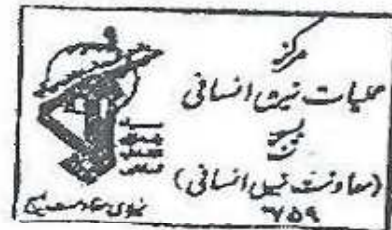 مرکز
عملیات نیروی انسانی
بسیج
(معاونت نیروی انسانی)
۷۵۹
نیروی مقاومت بسیج